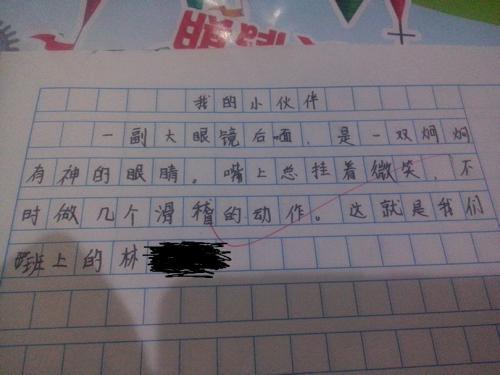 我的小伙伴
一副大眼镜后面,是一双炯炯
有神的眼睛。嘴上总挂着微笑,不
时做几个滑稽的动作。这就是我们
班上的林